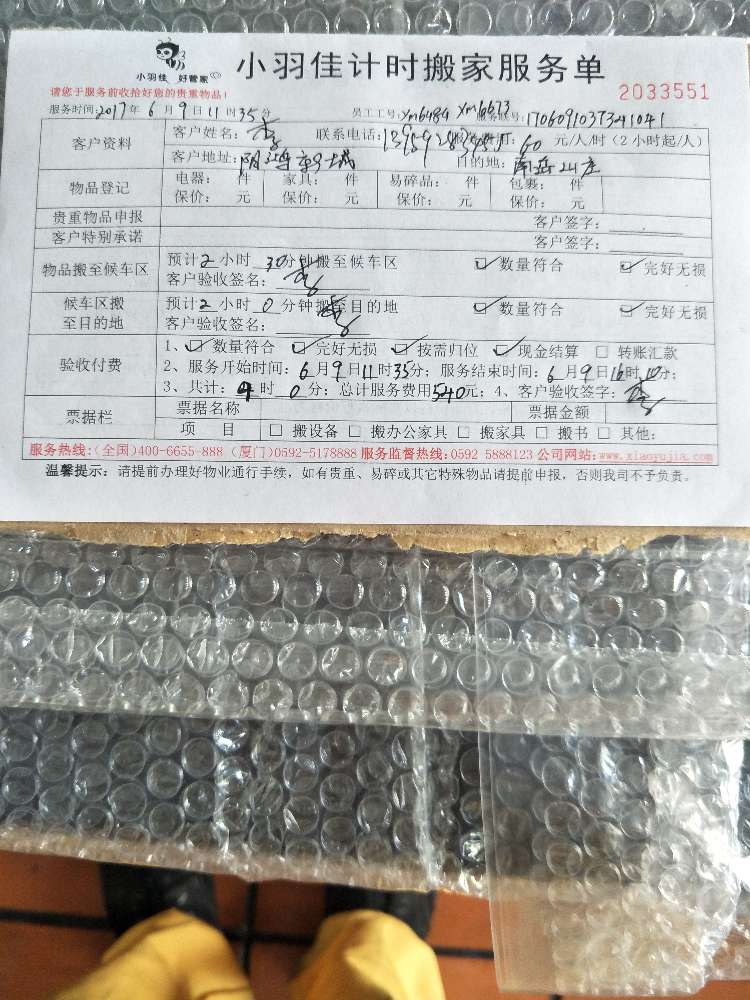 小羽佳 好管家
小羽佳计时搬家服务单
请您于服务前收拾好您的贵重物品!
2033551
服务时间:2017年6月9日11时35分 员工工号:xm6484 xm6613 1706091037341041
客户资料
客户姓名:李 联系电话: 60 元/人/时(2小时起/人)
客户地址: 目的地:南岳山庄
物品登记
电器: 件 家具: 件 易碎品: 件 包裹: 件
保价: 元 保价: 元 保价: 元 保价: 元
贵重物品申报 客户签字:
客户特别承诺 客户签字:
物品搬至候车区
预计2小时30分钟搬至候车区 ☑数量符合 ☑完好无损
客户验收签名:李
候车区搬至目的地
预计2小时0分钟搬至目的地 ☑数量符合 ☑完好无损
客户验收签名:李
验收付费
1、☑数量符合 ☑完好无损 ☑按需归位 ☑现金结算 □转账汇款
2、服务开始时间:6月9日11时35分;服务结束时间:6月9日16时10分;
3、共计:4时0分;总计服务费用540元;4、客户验收签字:李
票据栏
票据名称 票据金额
项 目 □搬设备 □搬办公家具 □搬家具 □搬书 □其他:
服务热线:(全国)400-6655-888 (厦门)0592-5178888 服务监督热线:0592 5888123 公司网站:www.xiaoyujia.com
温馨提示:请提前办理好物业通行手续,如有贵重、易碎或其它特殊物品请提前申报,否则我司不予负责。